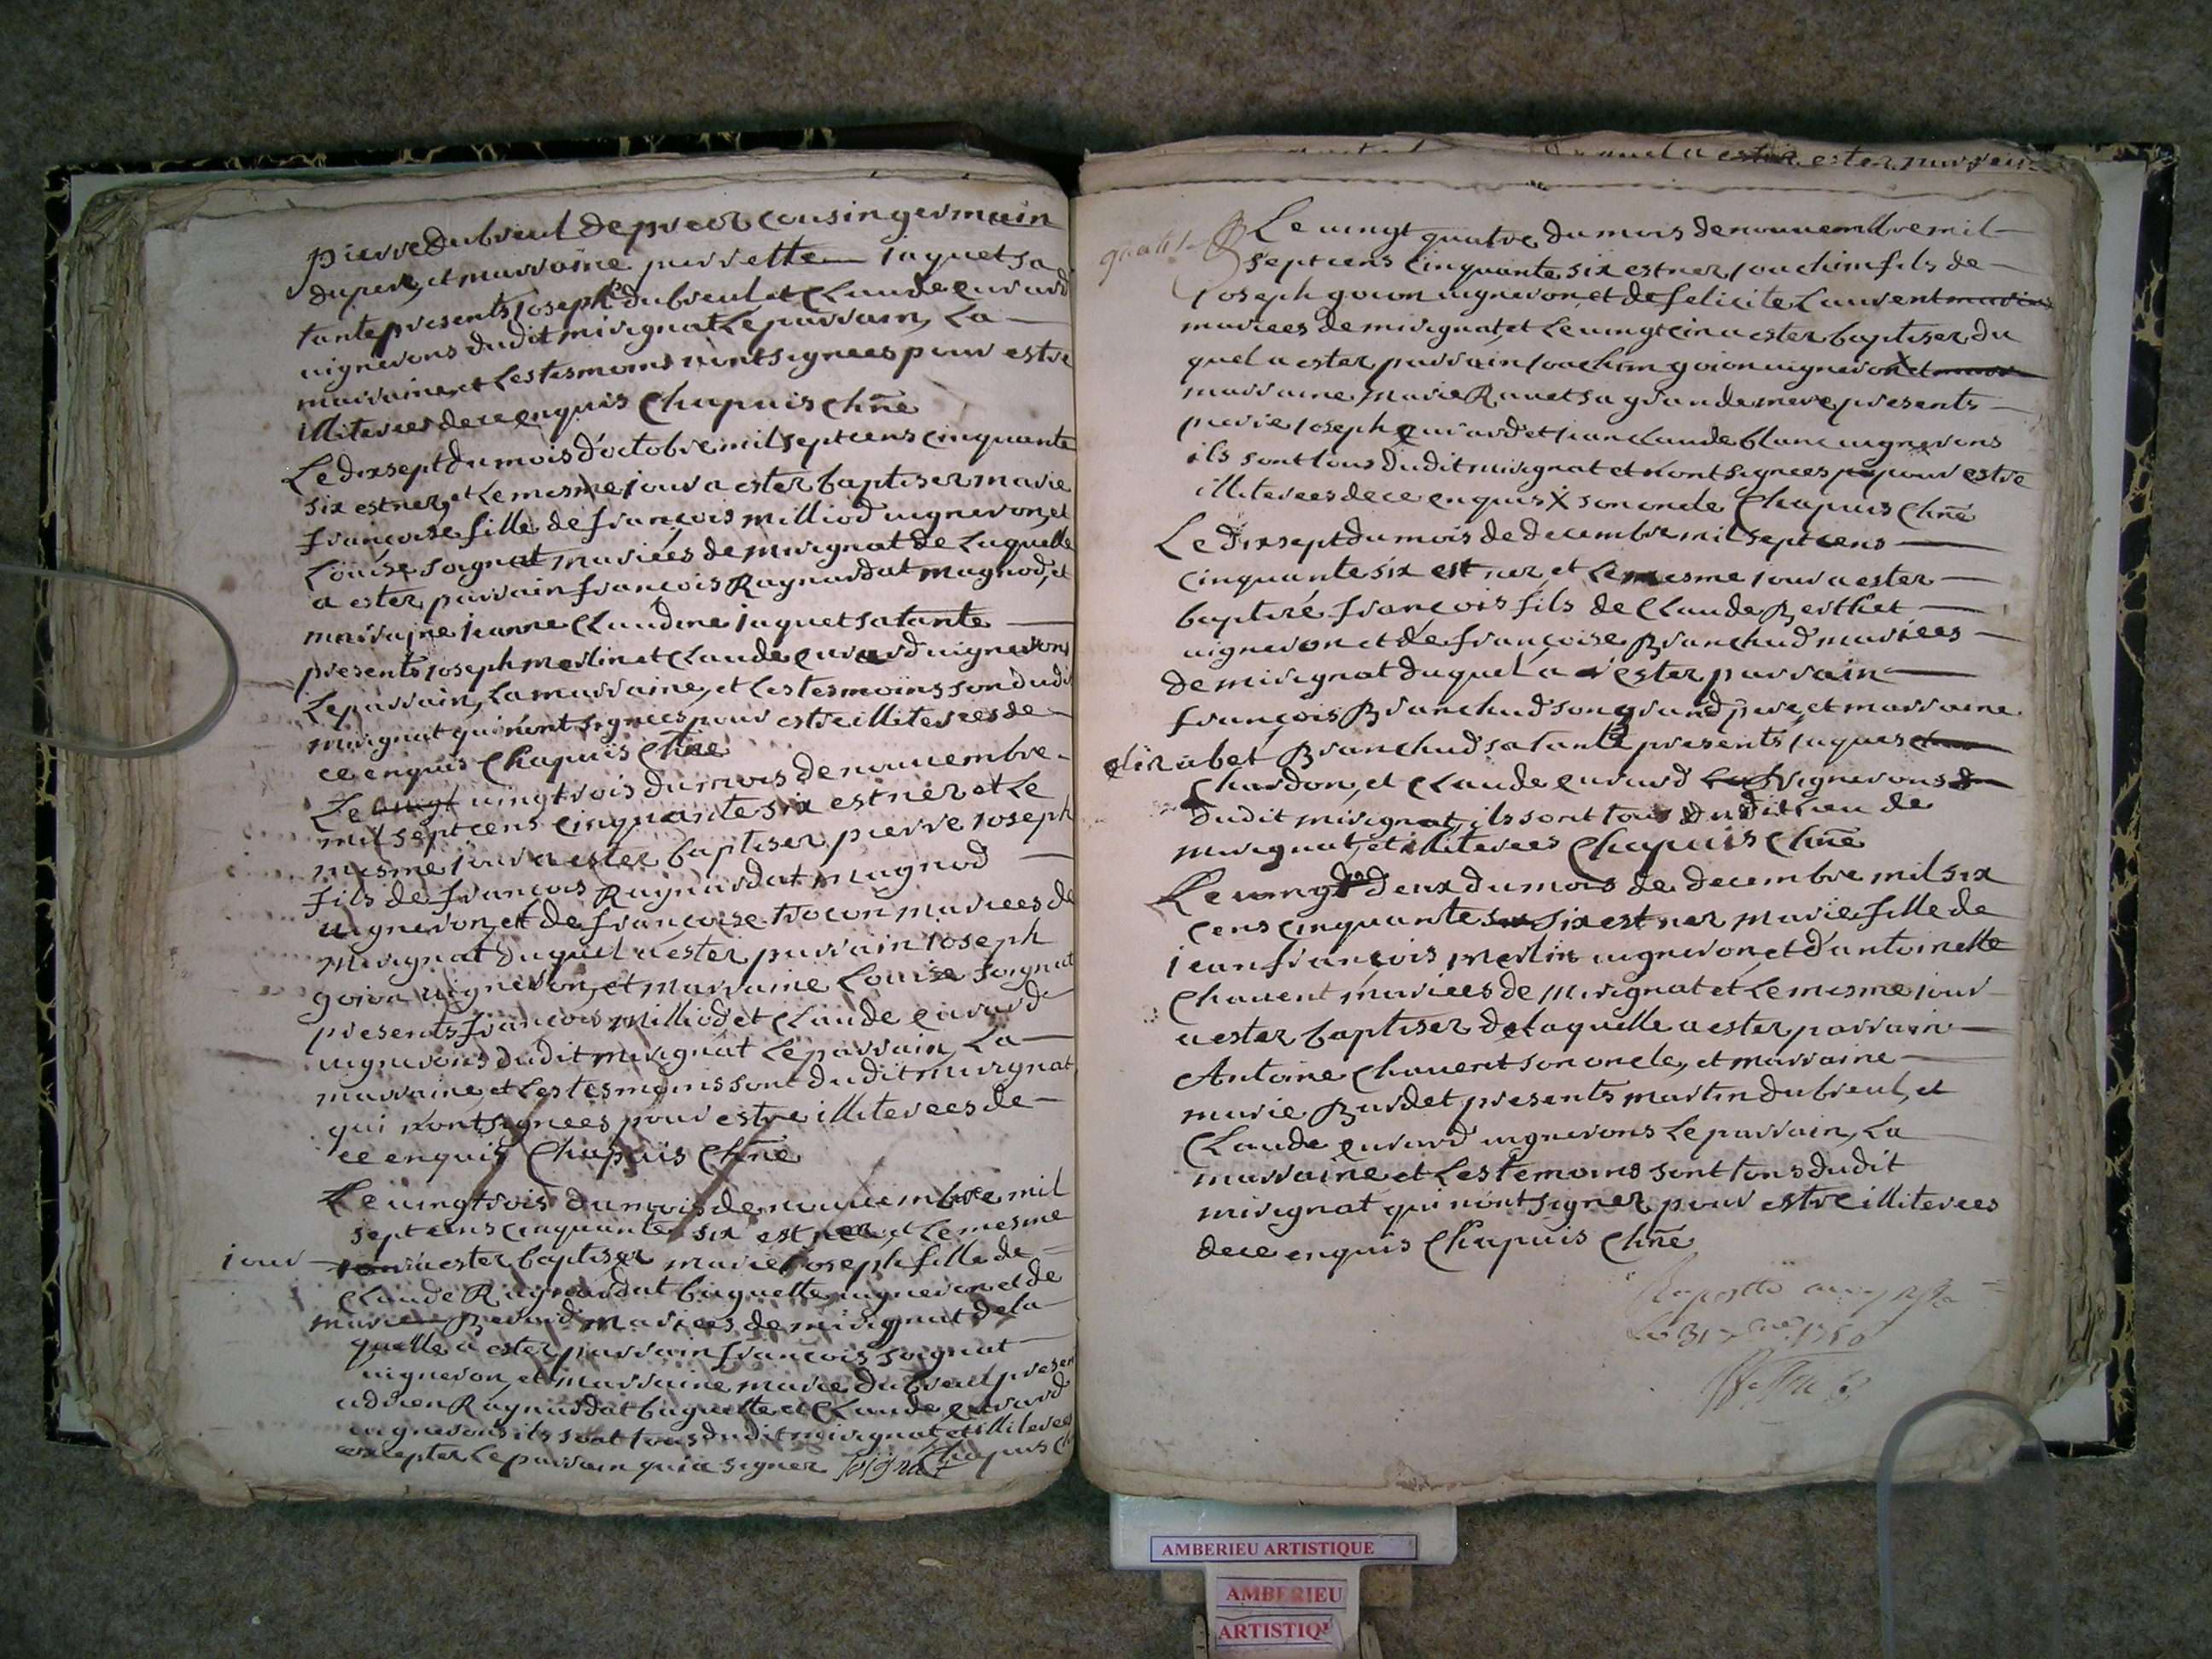 pierre dubreul de preor cousin germain
du pere, et marraine pierrette jaquet sa
tante presents joseph dubreul et Claude evrard
vignerons dudit mirignat le parrain, La
marraine, et les tesmoins n'ont signees pour estre
illiterees de ce enquis Chapuis Chne
Le dix sept du mois d'octobre mil sept cens cinquante
six est nez, et le mesme jour a ester baptiser marie
françoise fille de françois milliod vigneron, et
Louise soignat mariées de mirignat de Laquelle
a ester parrain françois Raynardat magnod, et
marraine jeanne Claudine jaquet sa tante
presents joseph merlin et Claude evrard vignerons
Le parrain, La marraine, et les tesmoins son dudit
mirignat qui n'ont signees pour estre illiterees de
ce enquis Chapuis Chne
Le vingt vingtrois du mois de novembre
mil sept cens cinquante six est nez et Le
mesme jour a ester baptiser pierre joseph
fils de françois Raynardat magnod
vigneron, et de françoise trocon mariees de
mirignat duquel a ester parrain joseph
goion vigneron, et marraine Louise soignat
presents françois milliod et Claude evrard
vignerons dudit mirignat Le parrain, La
marraine, et Les tesmoins sont dudit mirignat
qui n'ont signees pour estre illiterees de
ce enquis Chapuis Chne
Le vingtrois du mois de novembre mil
sept cens cinquante six est nez, et Le mesme
jour a ester baptiser marie joseph fille de
Claude Raynardat baguette vigneron et de
marie mariees de mirignat de la
quelle a ester parrain françois soignat
vigneron, et marraine marie dubreul presen
adrien Raynardat baguette et Claude evrard
vignerons ils sont tous dudit mirignat, et illiterees
excepter Le parrain qui a signer Soignat Chapuis Ch
a ester ester parrain
gratis Le vingt quatre du mois de novembre mil
sept cens cinquante six est nez joachim fils de
joseph goion vigneron, et de felicite Laurent
mariees de mirignat, et Le vingt cin a ester baptiser du
quel a ester parrain joachim goion vigneron X et
marraine marie Ravet sa grande mere presents
joseph evrard et jean claude blanc vignerons
ils sont tous dudit mirignat et n'ont signees pour estre
illiterees de ce enquis X son oncle Chapuis Chne
Le dix sept du mois de decembre mil sept cens
cinquante six est nez, et Le mesme jour a ester
baptizé françois fils de Claude Berthet
vigneron et de françoise Branchud mariees
de mirignat duquel a ester parrain
françois Branchud son grand pere, et marraine
elizabet Branchud sa tante presents jaques
Chardon, et Claude evrard vignerons
dudit mirignat, ils sont tous dudit lieu de
mirignat, et illiterees Chapuis Chne
Le vingt deux du mois de decembre mil six
cens cinquante six est nez marie fille de
jean françois merlin vigneron et d'antoinette
Chavent mariees de mirignat et Le mesme jour
a ester baptiser de Laquelle a ester parrain
Antoine Chavent son oncle, et marraine
marie Burdet presents martin dubreul, et
Claude evrard vignerons Le parrain, La
marraine et Les temoins sont tous dudit
mirignat qui n'ont signer pour estre illiterees
de ce enquis Chapuis Chne
AMBERIEU ARTISTIQUE
AMBERIEU
ARTISTIQ